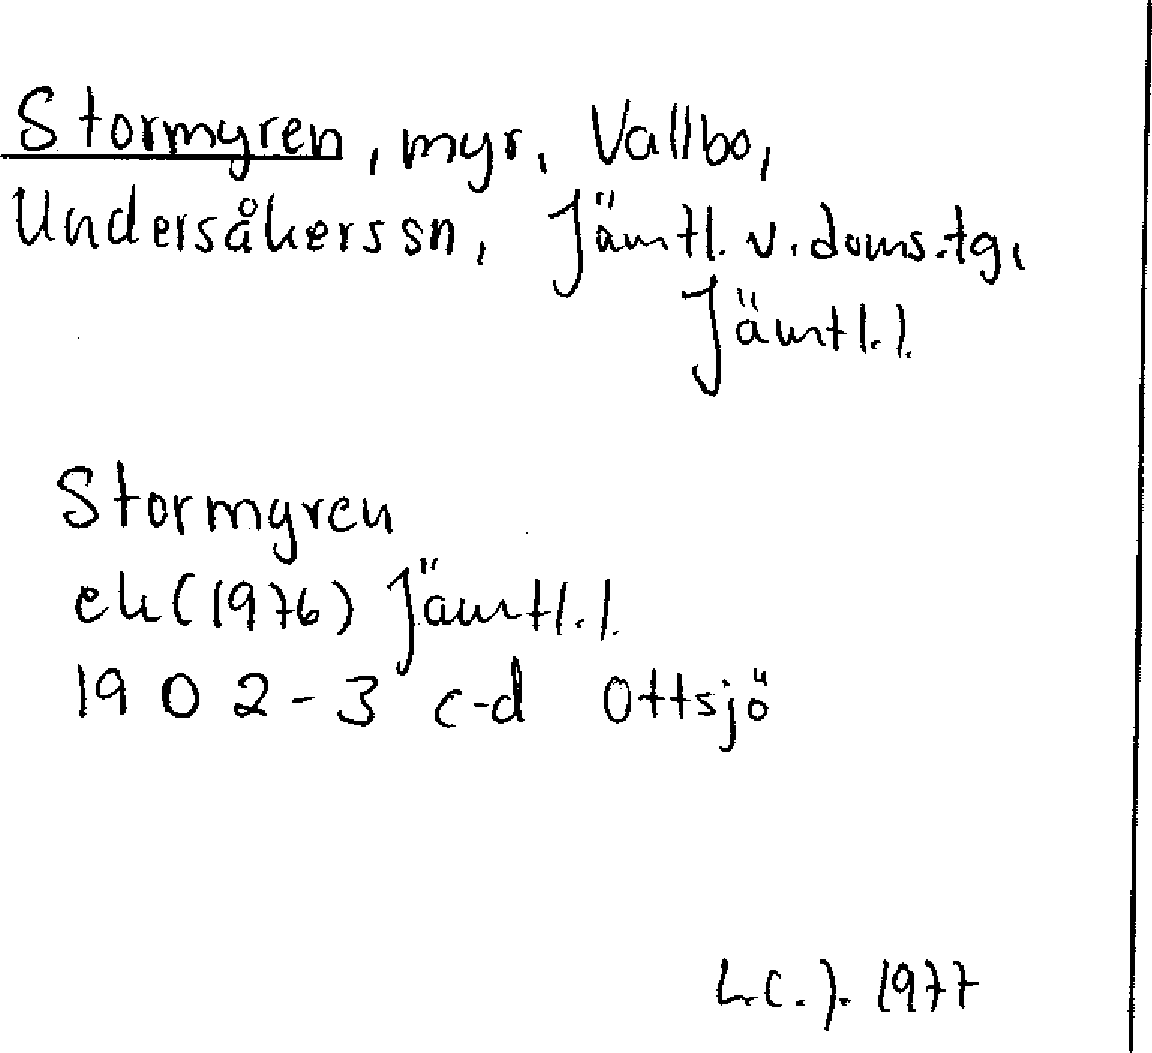 Stormyren, myr, Vallbo,
Undersåkers sn, Jämtl. v. doms.tg,
Jämtl. l.
Stormyren
ek (1976) Jämtl. l.
19 0 2-3 c-d Ottsjö
L.C.J. 1977